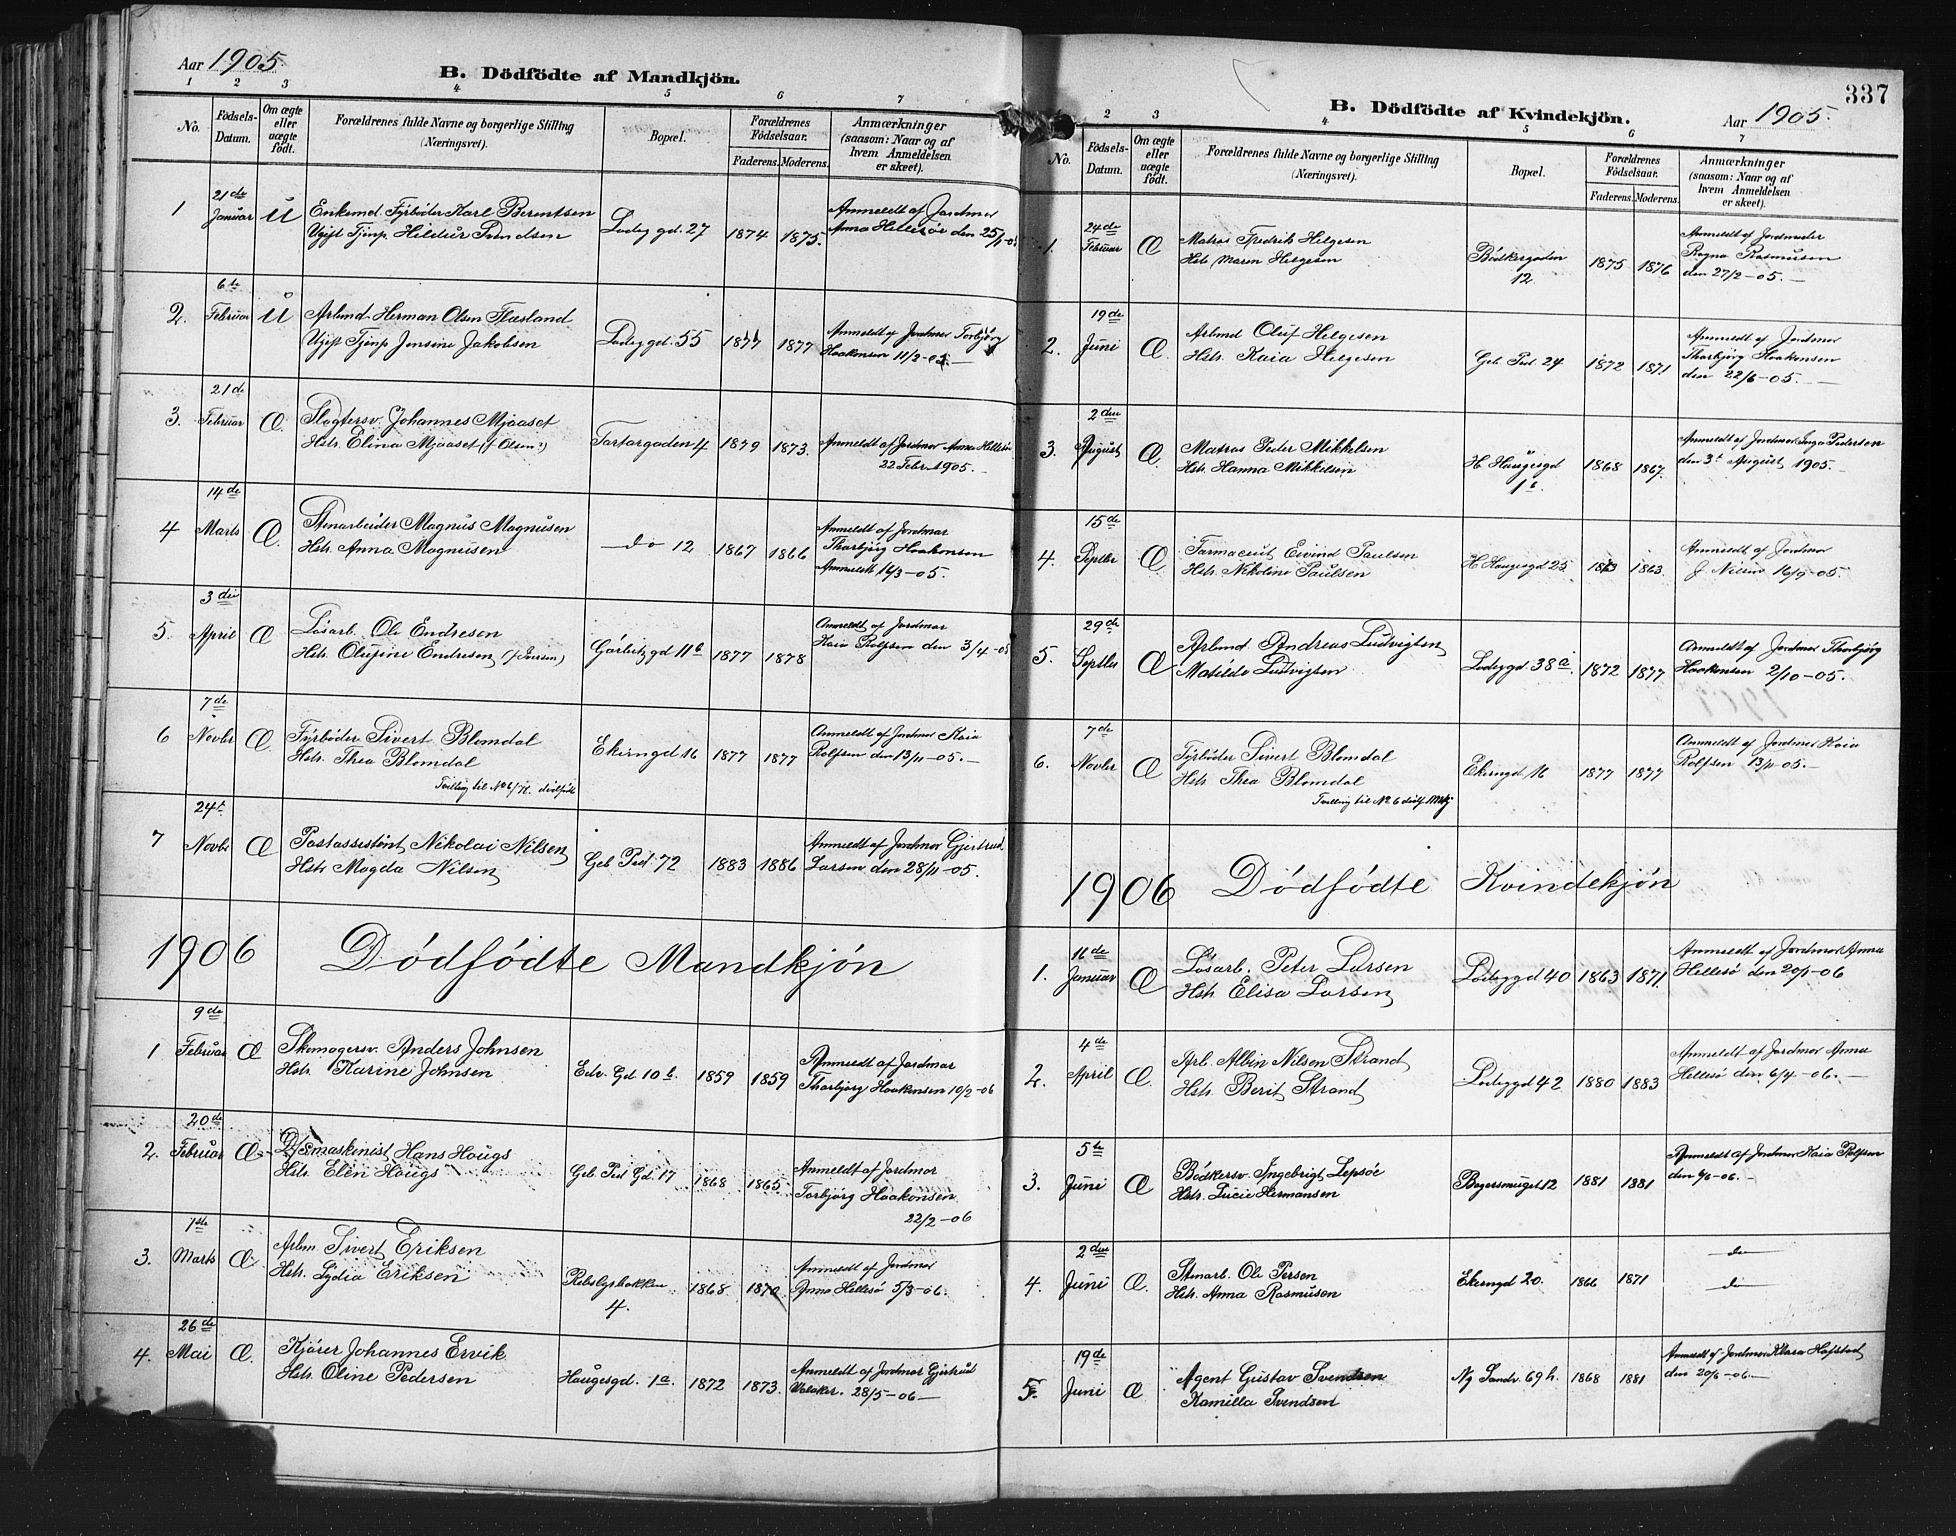 Aar 1905.
B. Dödfödte af Mandkjön.
1 2 3 4 5 6 7
No.
Födsels-Datum.
Om ægte eller uægte födt.
Forældrenes fulde Navne og borgerlige Stilling (Næringsvei).
Bopæl.
Forældrenes Födselsaar.
Faderens. Moderens.
Anmærkninger (saasom: Naar og af hvem Anmeldelsen er skeet).
1 21de Januar U
Enkemd. Fyrböder Karl Berentsen
Ugift Tjenp. Hildur Svendsen
Ladegd. 27 1874 1875.
Anmeldt af Jordmor
Anna Hillesö den 25/1-05
2. 6te Februar U
Arbmd Herman Olsen Flesland
Ugift Tjenp Jensine Jakobsen
Ladegd. 55 1877 1877
Anmeldt af Jordmor Torbjörg
Haakensen 11/2-05.
3. 21de Februar Æ.
Slagtersv. Johannes Mjaaset
Hstr. Elina Mjaaset (f. Olsen)
Tartargaden 4 1879 1873.
Anmeldt af Jordmor Anna Hillesö
22 Febr. 1905.
4 14de Marts Æ.
Stenarbeider Magnus Magnusen
Hstr. Anna Magnusen
do 12 1867 1866
Anmeldt af Jordmor
Tharbjörg Haakonsen
Anmeldt 16/3-05.
5. 3die April Æ
Lösarb. Ole Endresen
Hstr. Olufine Endresen
11b 1877 1878
Anmeldt af Jordmor
Kaia Rolfsen den 3/4-05
6 7de Novbr Æ
Fyrböder Sivert Blomdal
Hstr. Thea Blomdal
Tvilling til No 6
Ekerngd 16 1877 1877
Anmeldt af Jordmor Kaia
Rolfsen den 13/11-05.
7 24t Novbr Æ
Postassistent Nikolai Nilsen
Hstr Magda Nilsen
72 1883 1886
Anmeldt af Jordmor Gjertrud
Larsen den 28/11-05.
1906 Dödfödte Mandkjön
1 9de Februar Æ
Skomagersv. Anders Johnsen
Hstr. Karine Johnsen
Edv. Gd 10b. 1859 1859
Anmeldt af Jordmor
Tharbjörg Haakensen 10/2-06
2. 20de Februar Æ
Hans Hougs
Hstr. Elen Hougs
17 1868 1865
Anmeldt af Jordmor
Torbjörg Haakonsen
22/2-06
3. 1ste Marts Æ
Arbm Sivert Eriksen
Hstr. Lydia Eriksen
Rebslgbakken 4. 1868 1870
Anmeldt af Jordmor
Anna Hellesö 5/3-06.
4. 26de Mai Æ.
Kjörer Johannes Ervik
Hstr. Oline Pedersen
Haugesgd. 1a. 1872 1873.
Anmeldt af Jordmor Gjertrud
28/5-06
337
B. Dödfödte af Kvindekjön.
Aar 1905.
2 3 4 5 6 7
No.
Födsels-Datum.
Om ægte eller uægte födt.
Forældrenes fulde Navne og borgerlige Stilling (Næringsvei).
Bopæl.
Forældrenes Födselsaar.
Faderens. Moderens.
Anmærkninger (saasom: Naar og af hvem Anmeldelsen er skeet).
1. 24de Februar Æ
Matros Fredrik Helgesen
Hstr. Maren Helgesen
Bödkergaden 12. 1875 1876
Anmeldt af Jordmoder
Ragna Rasmusen
den 27/2-05.
2. 19de Juni Æ
Arbmd Oluf Helgesen
Hstr. Kaia Helgesen
24 1872 1871
Anmeldt af Jordmor
Tharbjörg Haakensen
den 22/6-05.
3. 2den August Æ.
Matros Peder Mikkelsen
Hstr. Hanna Mikkelsen
H. Haugesgd 1868 1867.
Anmeldt af Jordmor Inga Pedersen
den 3t August 1905.
4. 15de Septbr Æ
Farmaceut Eivind Paulsen
Hstr. Nikoline Paulsen
H Haugesgd 25 1863.
Anmeldt af Jordmor
J. Nilsen 16/9-05.
5. 29de Septbr Æ
Arbmd Andreas Ludvigsen
Matilde Ludvigsen
Ladegd 38a. 1872 1877
Anmeldt af Jordmor Tharbjörg
Haakensen 2/10-05.
6. 7de Novbr Æ
Fyrböder Sivert Blomdal
Hstr. Thea Blomdal
Tvilling til No 6
Ekerngd 16 1877 1877
Anmeldt af Jordmor Kaia
Rolfsen 13/11-05.
1906 Dödfödte Kvindekjön
1. 16de Januar Æ
Lösarb. Peter Larsen
Hstr. Elisa Larsen
Ladegd 40 1863 1871
Anmeldt af Jordmor Anna
Hellesö den 20/1-06
2. 4de April Æ.
Arb. Albin Nilsen Strand
Hstr. Berit Strand
Ladegd 42 1880 1883
Anmeldt af Jordmor Anna
Hellesö den 6/4-06.
3. 5te Juni Æ
Bödkersv. Ingebrigt Lepsöe
Hstr. Lucie Hermansen
Bagersmuget 12 1881 1881
Anmeldt af Jordmor Kaia Rolfsen
den 9/6-06.
4. 2den Juni Æ.
Stenarb. Ole Persen
Hstr. Anna Rasmusen
Ekerngd 20. 1866 1871
do
do
5. 19de Juni Æ
Agent Gustav Svendsen
Kamilla Svendsen
Ny Sandv. 69 h. 1868 1881
Anmeldt af Jordmor Klara Hafstad
den 20/6-06